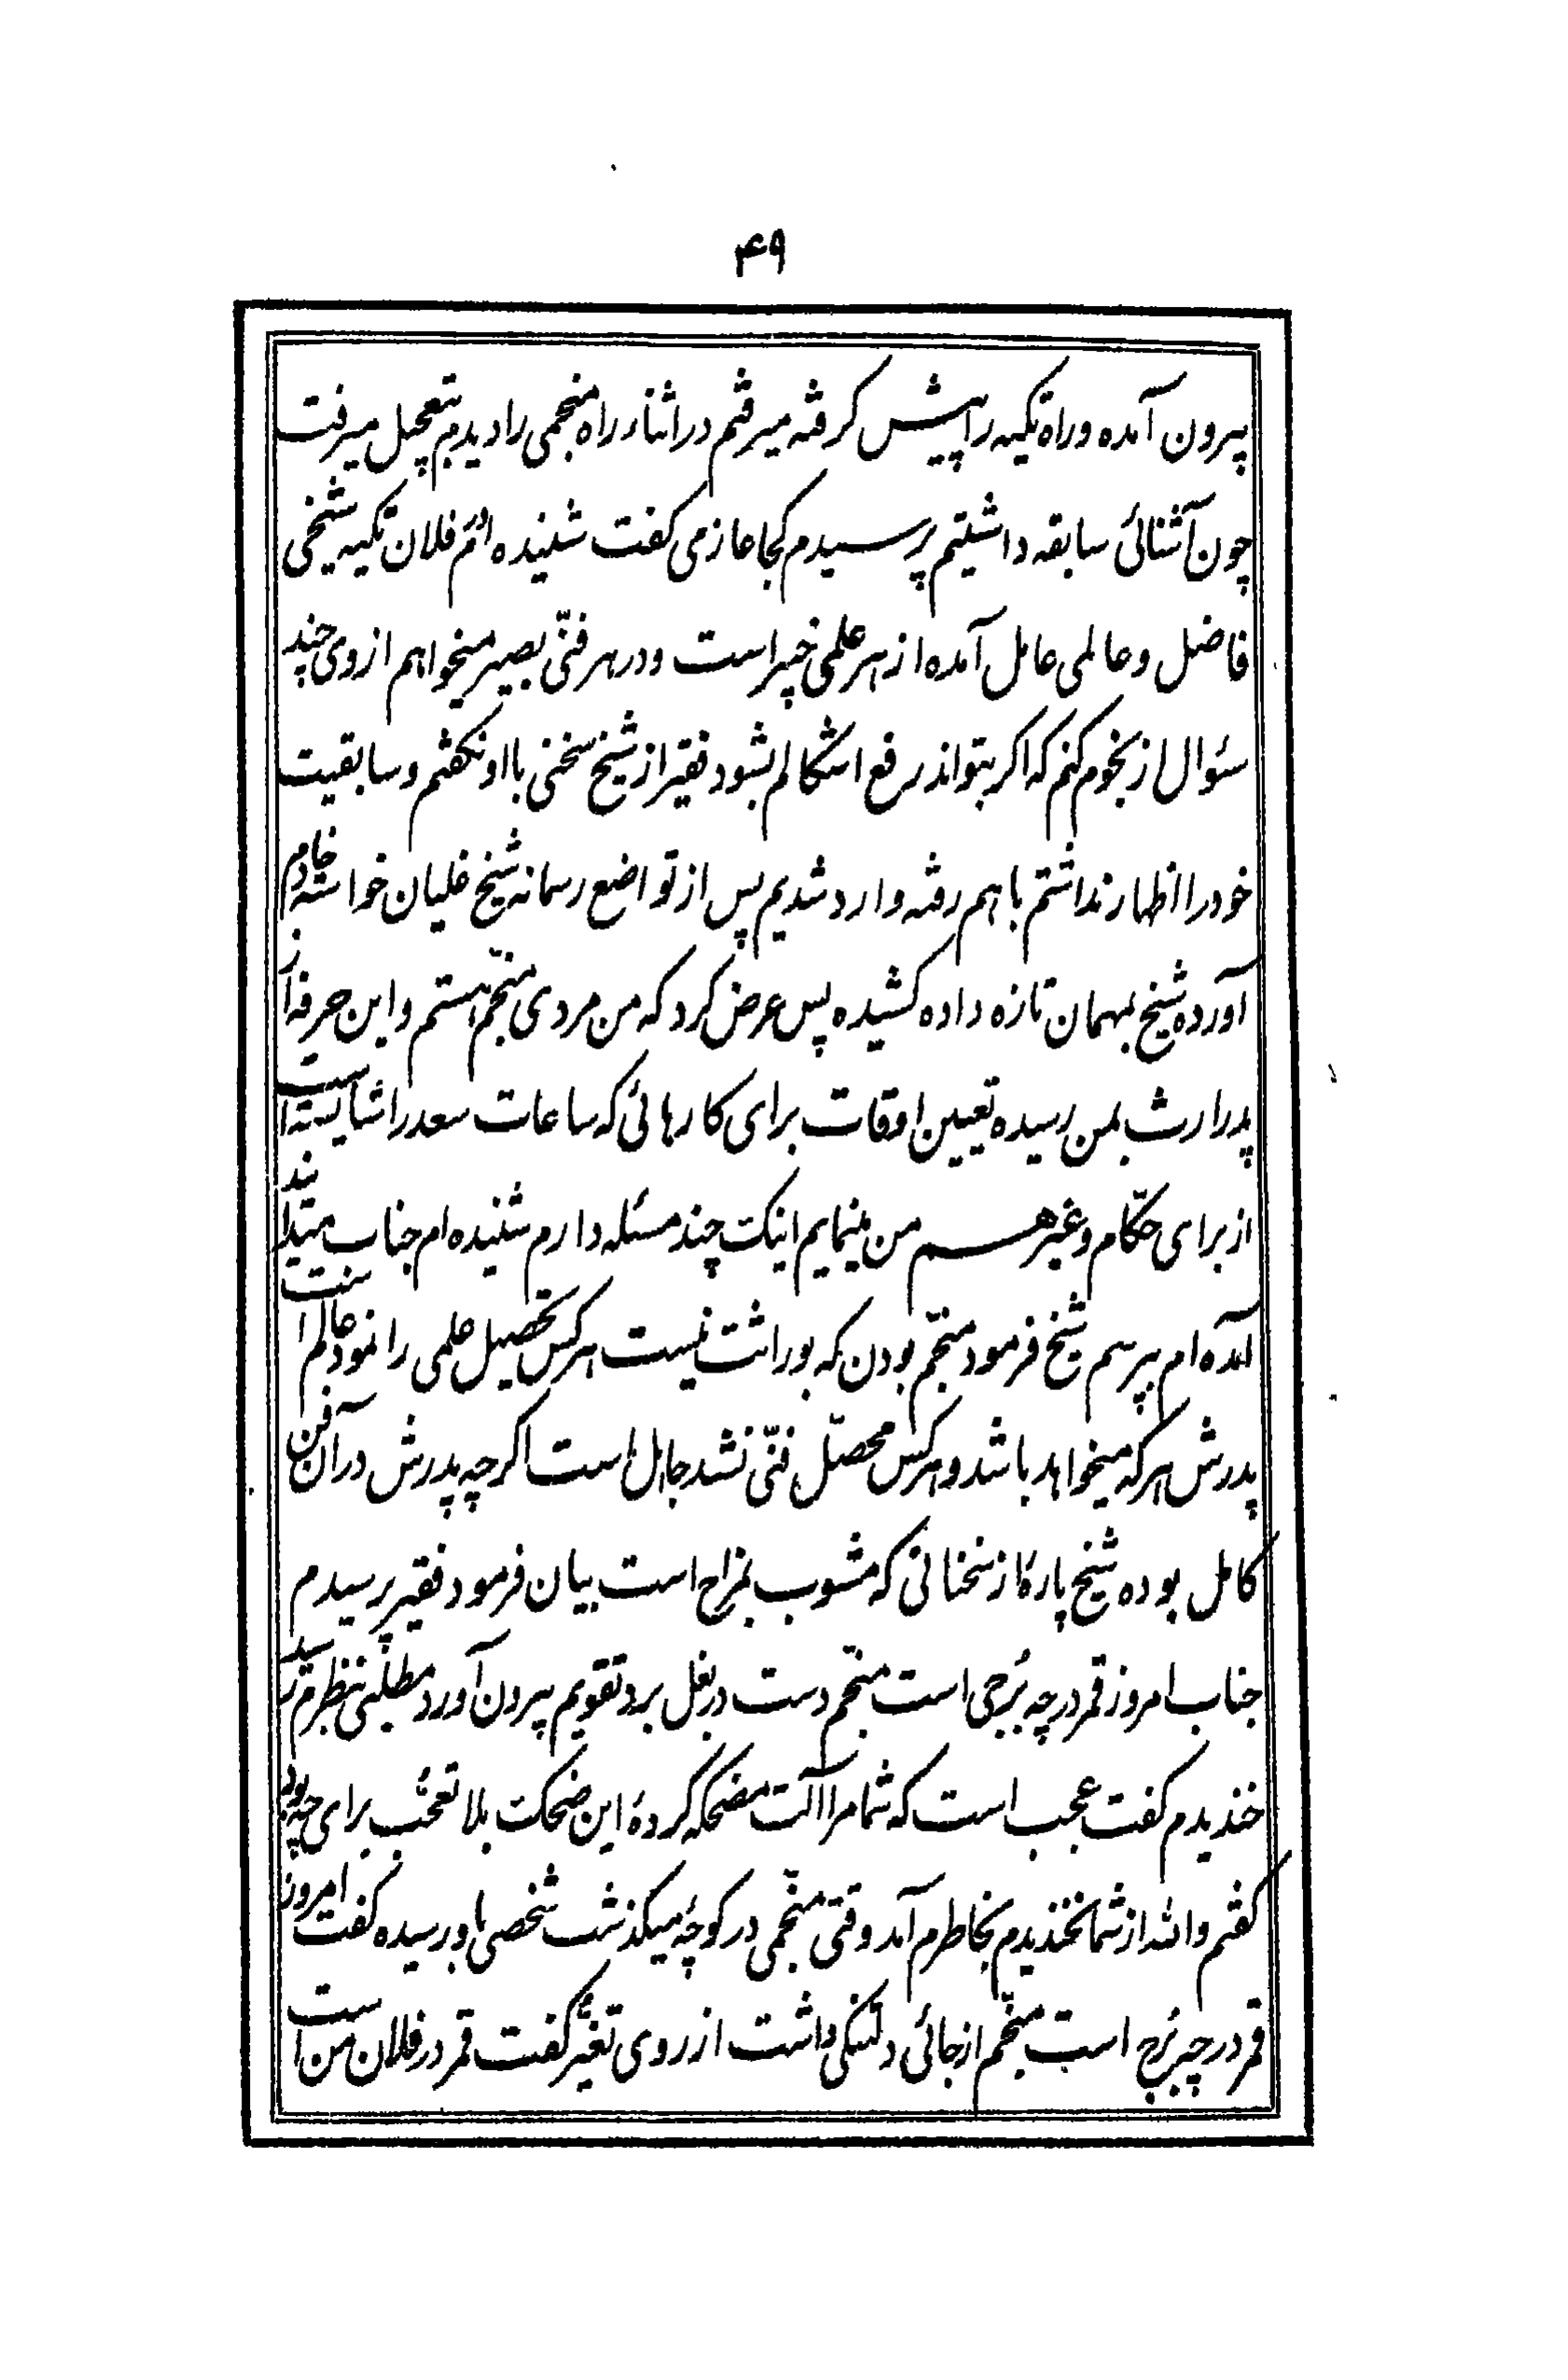 ۴۹
بیرون آمده و راه تکیه را پیش کرفته میرفتم در اثنار راه منجمی را دیدم بتعجیل میرفت
چون آشنائی سابقه داشتیم پرسیدم کجا عازمی کفت شنیده‌ام در فلان تکیه شیخی
فاضل و عالمی عامل آمده از هر علمی خبیر است و در هر فنّی بصیر میخواهم از وی چند
سئوال از نجوم کنم که اکر بتواند رفع اشکالم بشود فقیر از شیخ سخنی با او نکفتم و سابقیت
خود را اظهار نداشتم با هم رفته وارد شدیم پس از تواضع رسمانه شیخ غلیان خواسته خادم
آورده شیخ بمهمان تازه داده کشیده پس عرض کرد که من مردی منجّم هستم و این حرفه از
پدر ارث بمن رسیده تعیین اوقات برای کارهائی که ساعات سعد را شایسته است
از برای حکّام و غیرهم من مینمایم اینک چند مسئله دارم شنیده‌ام جناب میتدانند
آمده‌ام بپرسم شیخ فرمود منجّم بودن که بوراثت نیست هر کس تحصیل علمی را نمود عالم است
پدرش هر که میخواهد باشد و هر کس محصّل فنّی نشد جاهل است اکر چه پدرش در آن فن
کامل بوده شیخ پارهٔ از سخنانی که مشوب بمزاح است بیان فرمود فقیر پرسیدم
جناب امروز قمر در چه بُرجی است منجّم دست در بغل برد تقویم بیرون آورد مطلبی بنظرم رسید
خندیدم کفت عجب است که شما مرا آلت مضحکه کردهٔ این ضحک بلا تعجّب برای چه بود
کفتم والله از شما نخندیدم بخاطرم آمد وقتی منجّمی در کوچهٔ میکذشت شخصی باو رسیده کفت امروز
قمر در چه بُرج است منجّم از جائی دلتنکی داشت از روی تغیّر کفت قمر در فلان من است